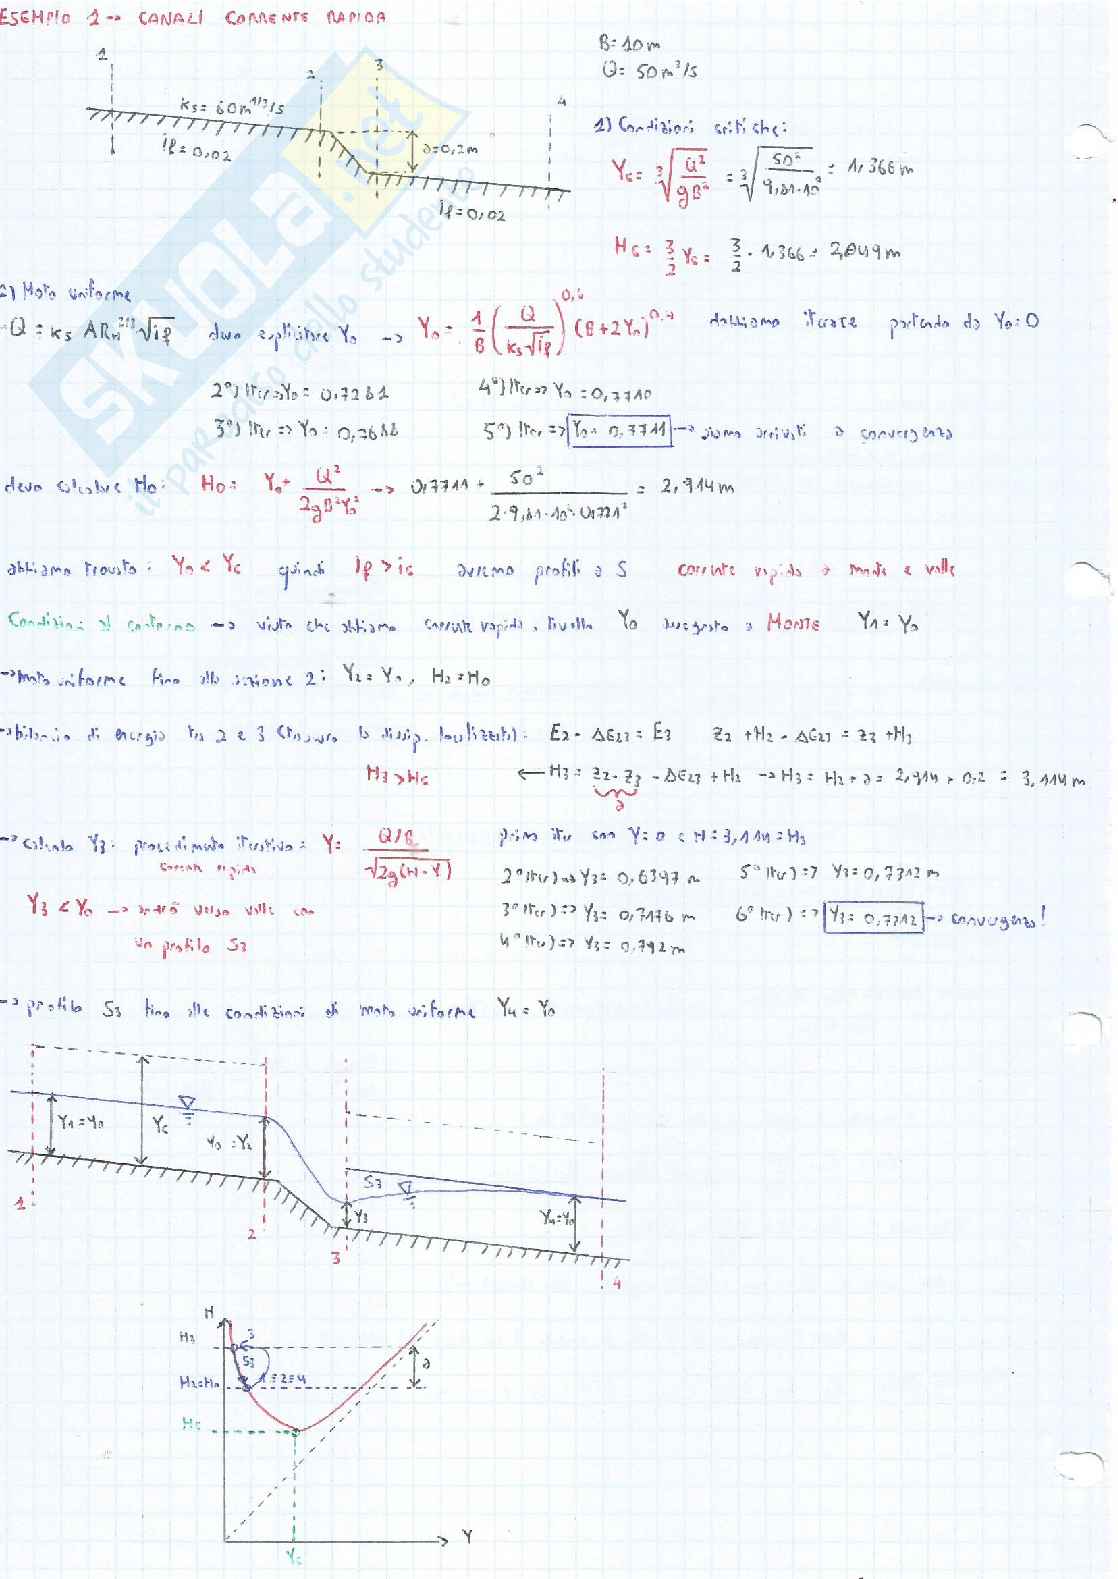 ESEMPIO 1 → CANALI CORRENTE RAPIDA
B = 10 m
Q = 50 m³/s
1 2 3 4
ks = 60 m^1/3/s
if = 0,02
a = 0,2 m
if = 0,02
1) Condizioni critiche:
Yc = ∛(Q²/gB²) = ∛(50²/9,81·10²) = 1,366 m
Hc = 3/2 Yc = 3/2 · 1,366 = 2,049 m
2) Moto uniforme
Q = ks A RH^2/3 √if devo esplicitare Y0 → Y0 = 1/B (Q/ks√if)^0,6 (B+2Y0)^0,4 dobbiamo iterare partendo da Y0=0
2°) Iter ⇒ Y0 = 0,7281
4°) Iter ⇒ Y0 = 0,7710
3°) Iter ⇒ Y0 = 0,7688
5°) Iter ⇒ Y0 = 0,7711 → siamo arrivati a convergenza
devo calcolare H0: H0 = Y0 + Q²/2gB²Y0² → 0,7711 + 50²/2·9,81·10²·0,771² = 2,914 m
abbiamo trovato: Y0 < Yc quindi if > ic avremo profili a S corrente rapida a monte e valle
Condizioni al contorno → visto che abbiamo corrente rapida, livello Y0 assegnato a MONTE Y1 = Y0
→ moto uniforme fino alla sezione 2: Y2 = Y0, H2 = H0
→ bilancio di energia tra 2 e 3 (trascuro la dissip. localizzata): E2 - ΔE23 = E3 Z2 + H2 - ΔE23 = Z3 + H3
H3 > Hc ← H3 = Z2 - Z3 - ΔE23 + H2 → H3 = H2 + a = 2,914 + 0.2 = 3,114 m
a
→ calcolo Y3: procedimento iterativo: Y = Q/B / √2g(H-Y) primo iter con Y=0 e H=3,114=H3
corrente rapida
2° Iter) ⇒ Y3 = 0,6397 m
5° Iter) ⇒ Y3 = 0,7312 m
Y3 < Y0 → andrò verso valle con
3° Iter) ⇒ Y3 = 0,7176 m
6° Iter) ⇒ Y3 = 0,7312 → convergenza!
un profilo S3
4° Iter) ⇒ Y3 = 0,792 m
→ profilo S3 fino alle condizioni di moto uniforme Y4 = Y0
Y1 = Y0
Yc
Y0 = Y2
S3
Y3
Y4 = Y0
1 2 3 4
H
H3
3
S3
a
H2=H0
1=2=4
Hc
Y
Yc
SKUOLA.net
il paradiso dello studente